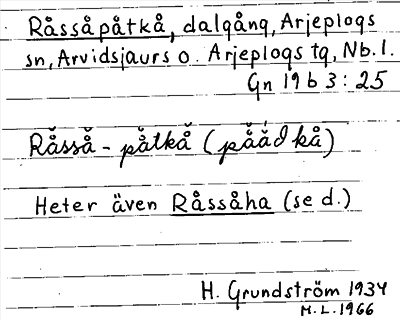 Råssåpåtkå, dalgång, Arjeplogs
sn, Arvidsjaurs o. Arjeplogs tg, Nb. l.
Gn 19 b 3 : 25
Rå̆sså̆ - på̆tkå̆ (på̆å̆dkå)
Heter även Råssåha (se d.)
H. Grundström 1934
M.L. 1966